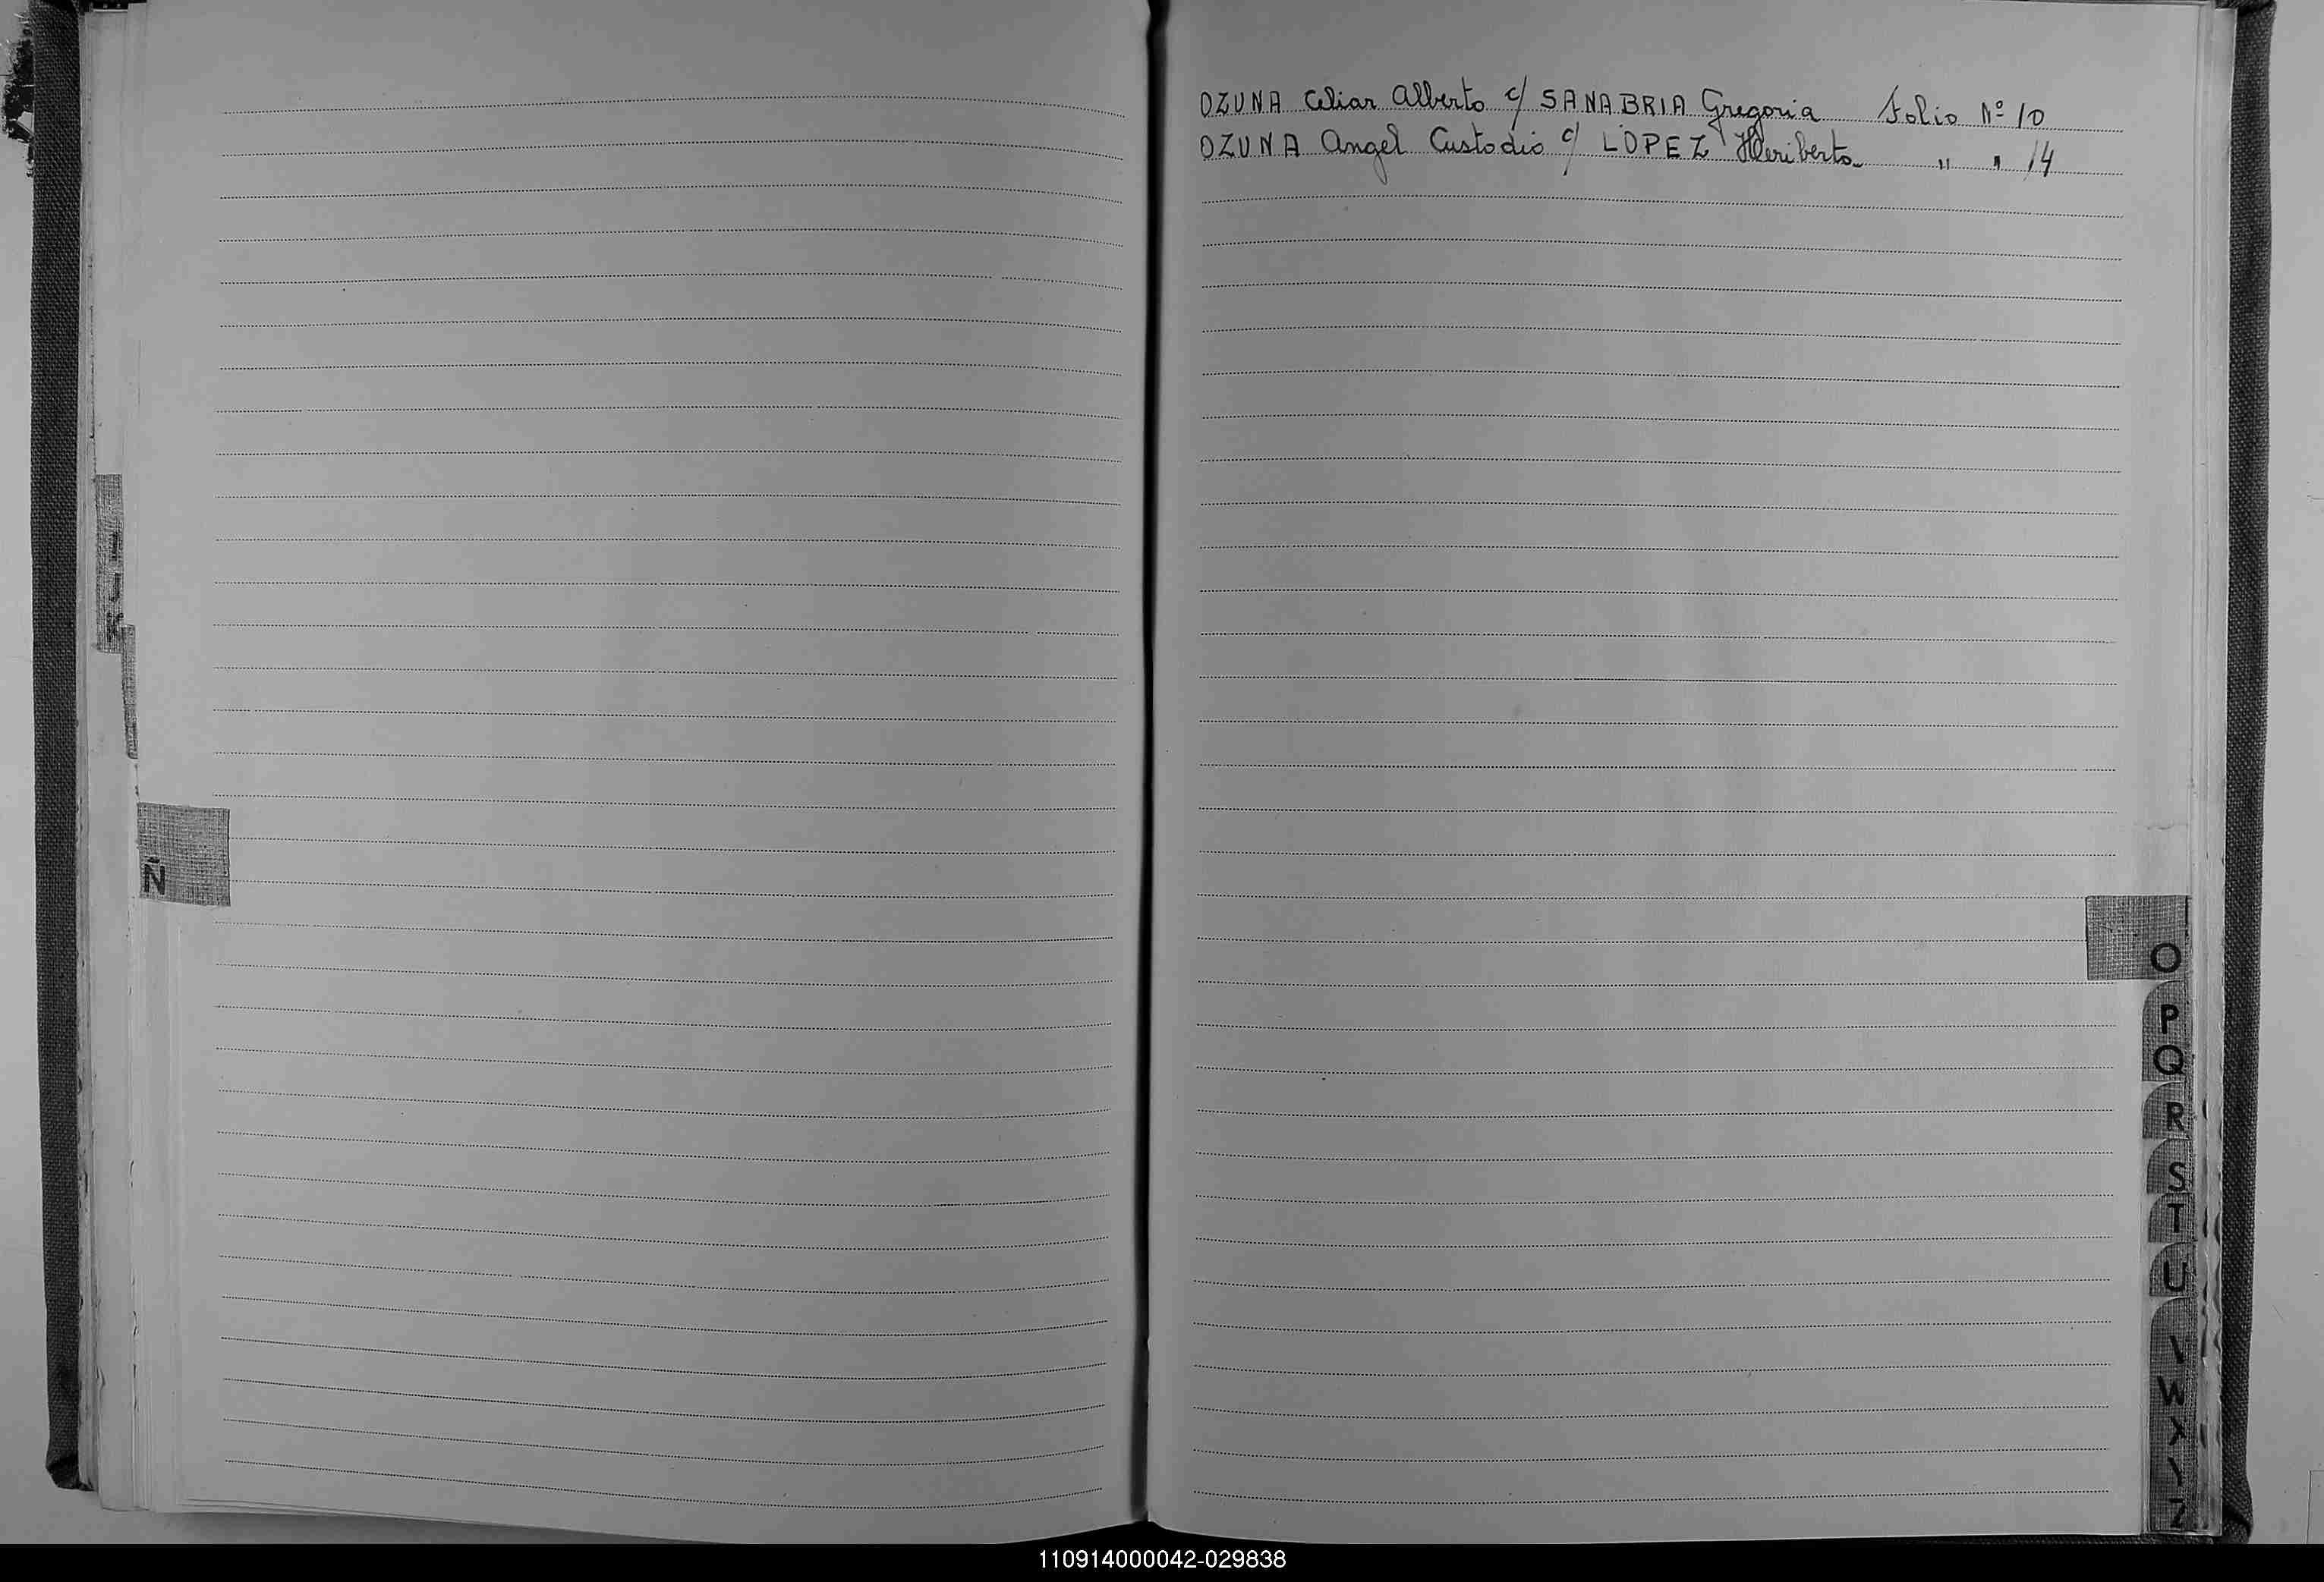 OZUNA Celiar Alberto c/ SANABRIA Gregoria Folio Nº 10
OZUNA Angel Custodio c/ LOPEZ Heriberto " " 14
Ñ
O
P
Q
R
S
T
U
V
W
X
Y
Z
110914000042-029838